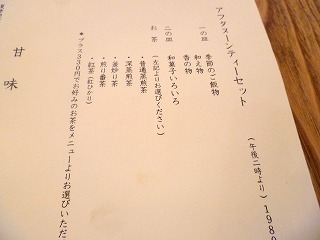 アフタヌーンティーセット
(午後二時より) 1980
一の皿 季節のご飯物
和え物
香の物
二の皿 和菓子いろいろ
お茶 (左記よりお選びください)
・普通蒸煎茶
・深蒸煎茶
・釜炒り茶
・煎り番茶
・紅茶(紅ひかり)
*プラス330円でお好みのお茶をメニューよりお選びいただ
甘味